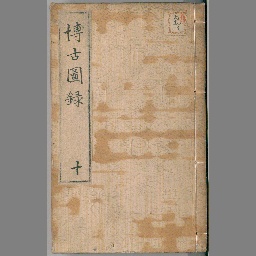 博古圖錄
十